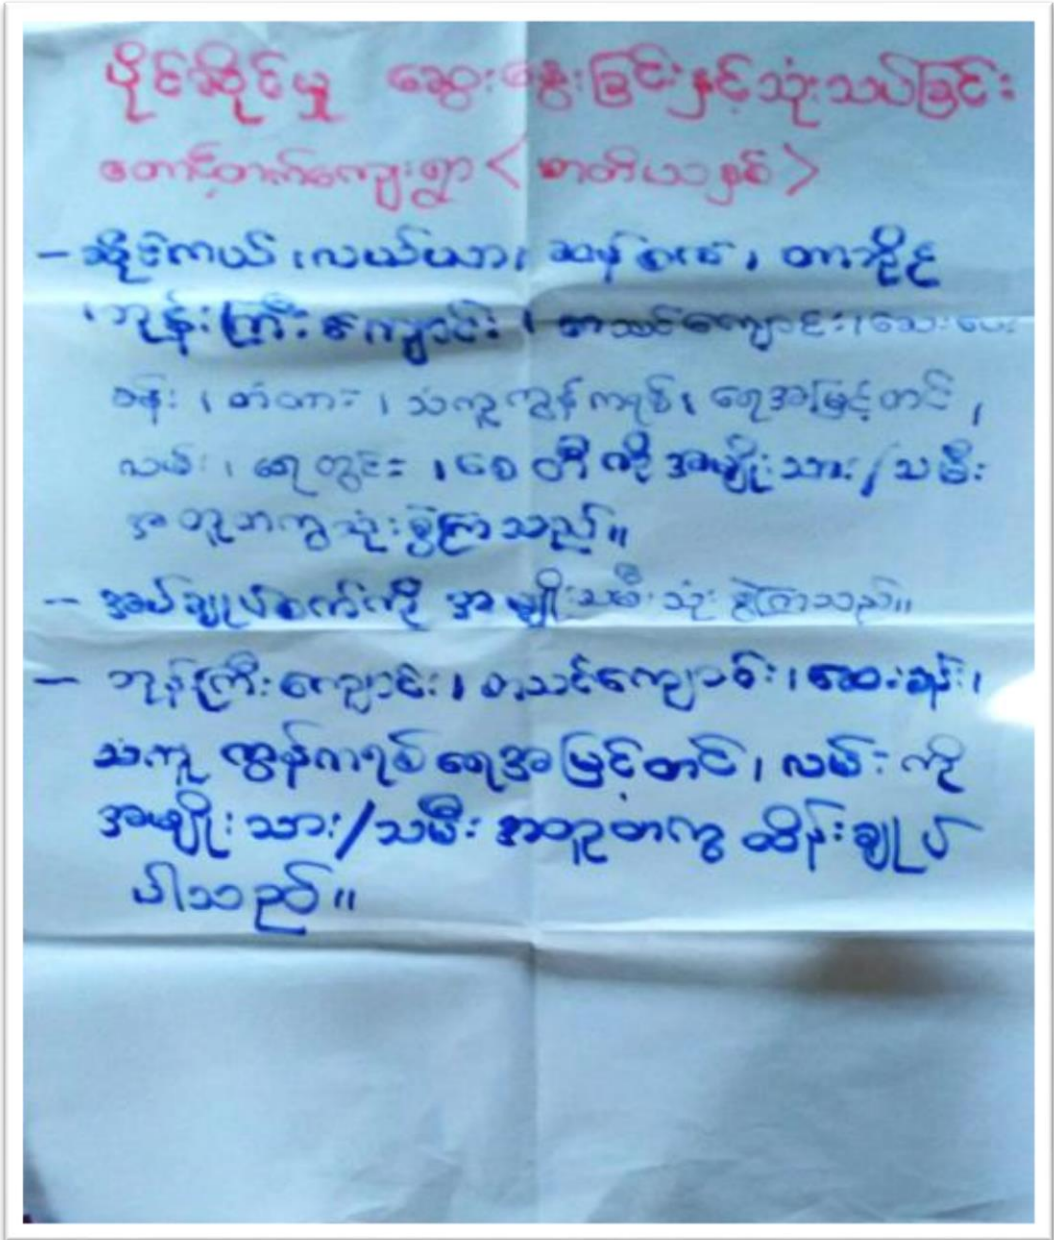 ပိုင်ဆိုင်မှု ဆွေးနွေးခြင်းနှင့်သုံးသပ်ခြင်း
တောင့်တက်ကျေးရွာ <
- ဆိုင်ကယ်၊ လယ်ယာ၊ ဆန်စက်၊
၊ ဘုန်းကြီးကျောင်း၊ စာသင်ကျောင်း၊ ဆေးပေး
ခန်း၊ တံတား၊ သံကူကွန်ကရစ်၊ ရေအမြင့်တင်၊
လမ်း၊ ရေတွင်း၊ စေတီကို အမျိုးသား/သမီး
အတူတကွသုံးစွဲကြသည်။
- အပ်ချုပ်စက်ကို အမျိုးသမီးသုံးစွဲကြသည်။
- ဘုန်းကြီးကျောင်း၊ စာသင်ကျောင်း၊ ဆေးခန်း၊
သံကူ ကွန်ကရစ်ရေအမြင့်တင်၊ လမ်းကို
အမျိုးသား/သမီး အတူတကွ ထိန်းချုပ်
ပါသည်။